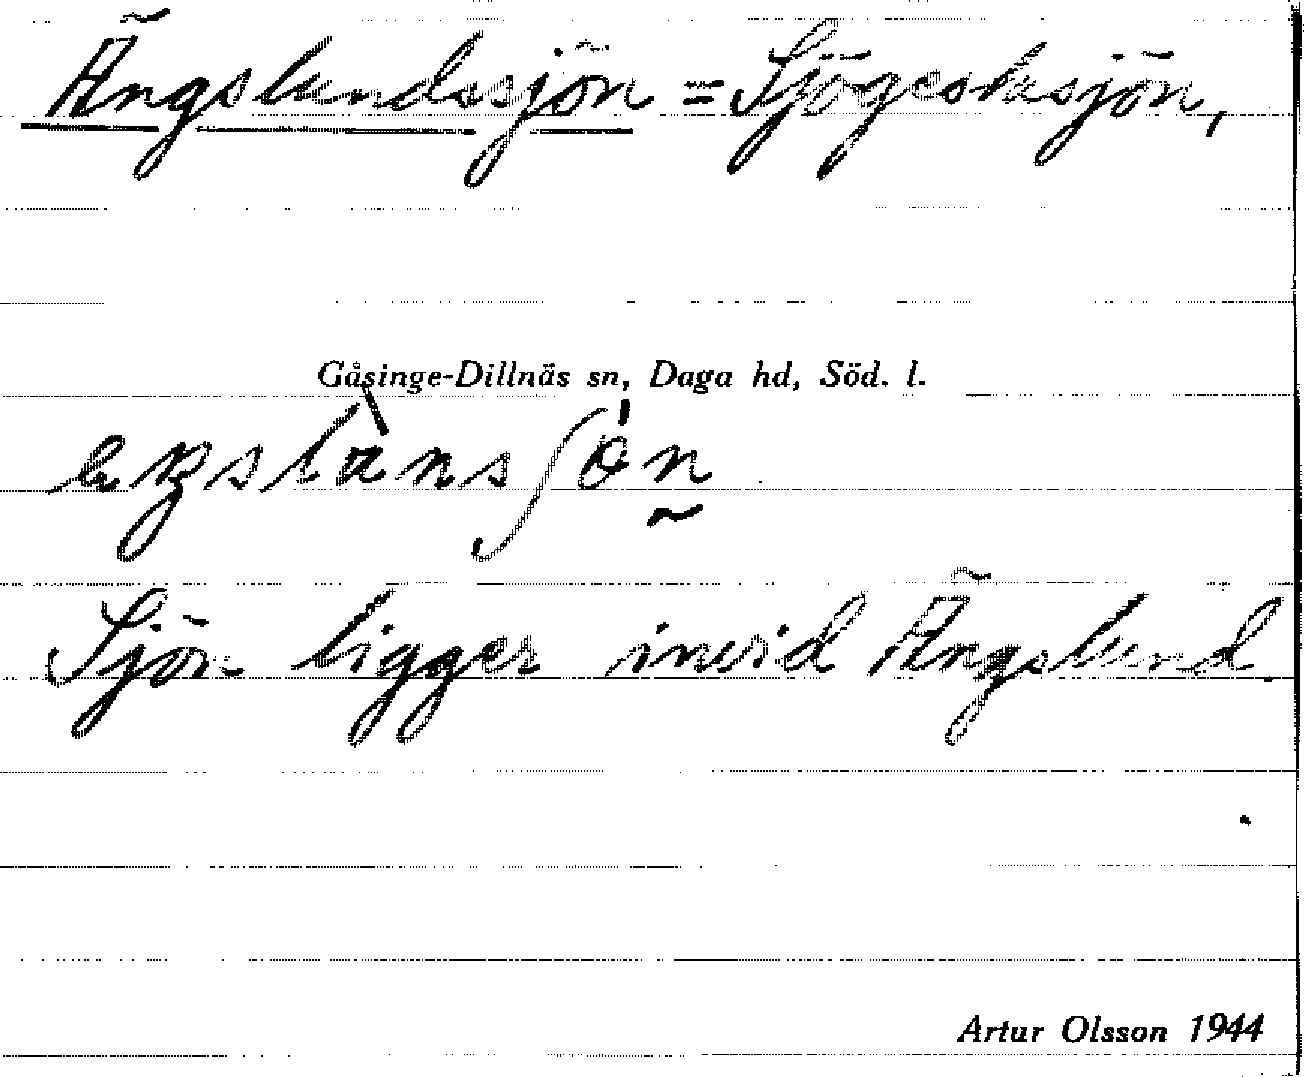 Ängslundssjön = Sjögestasjön,
Gåsinge-Dillnäs sn, Daga hd, Söd. l.
Sjön ligger invid Ängslund.
Artur Olsson 1944